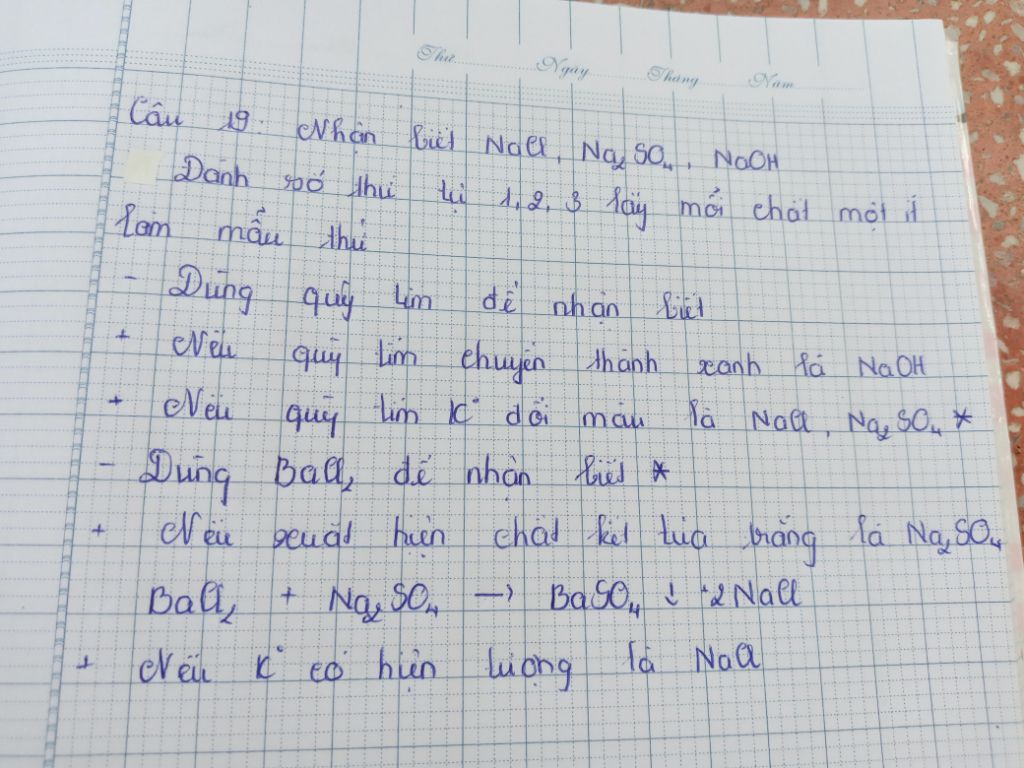 Thứ Ngày Tháng Năm
Câu 19: Nhận biết NaCl, Na₂SO₄, NaOH
Đánh số thứ tự 1, 2, 3 lấy mỗi chất một ít
làm mẫu thử
- Dùng quỳ tím để nhận biết
+ Nếu quỳ tím chuyển thành xanh là NaOH
+ Nếu quỳ tím K° đổi màu là NaCl, Na₂SO₄ *
- Dùng BaCl₂ để nhận biết *
+ Nếu xuất hiện chất kết tủa trắng là Na₂SO₄
BaCl₂ + Na₂SO₄ → BaSO₄ ↓ + 2NaCl
+ Nếu K° có hiện tượng là NaCl